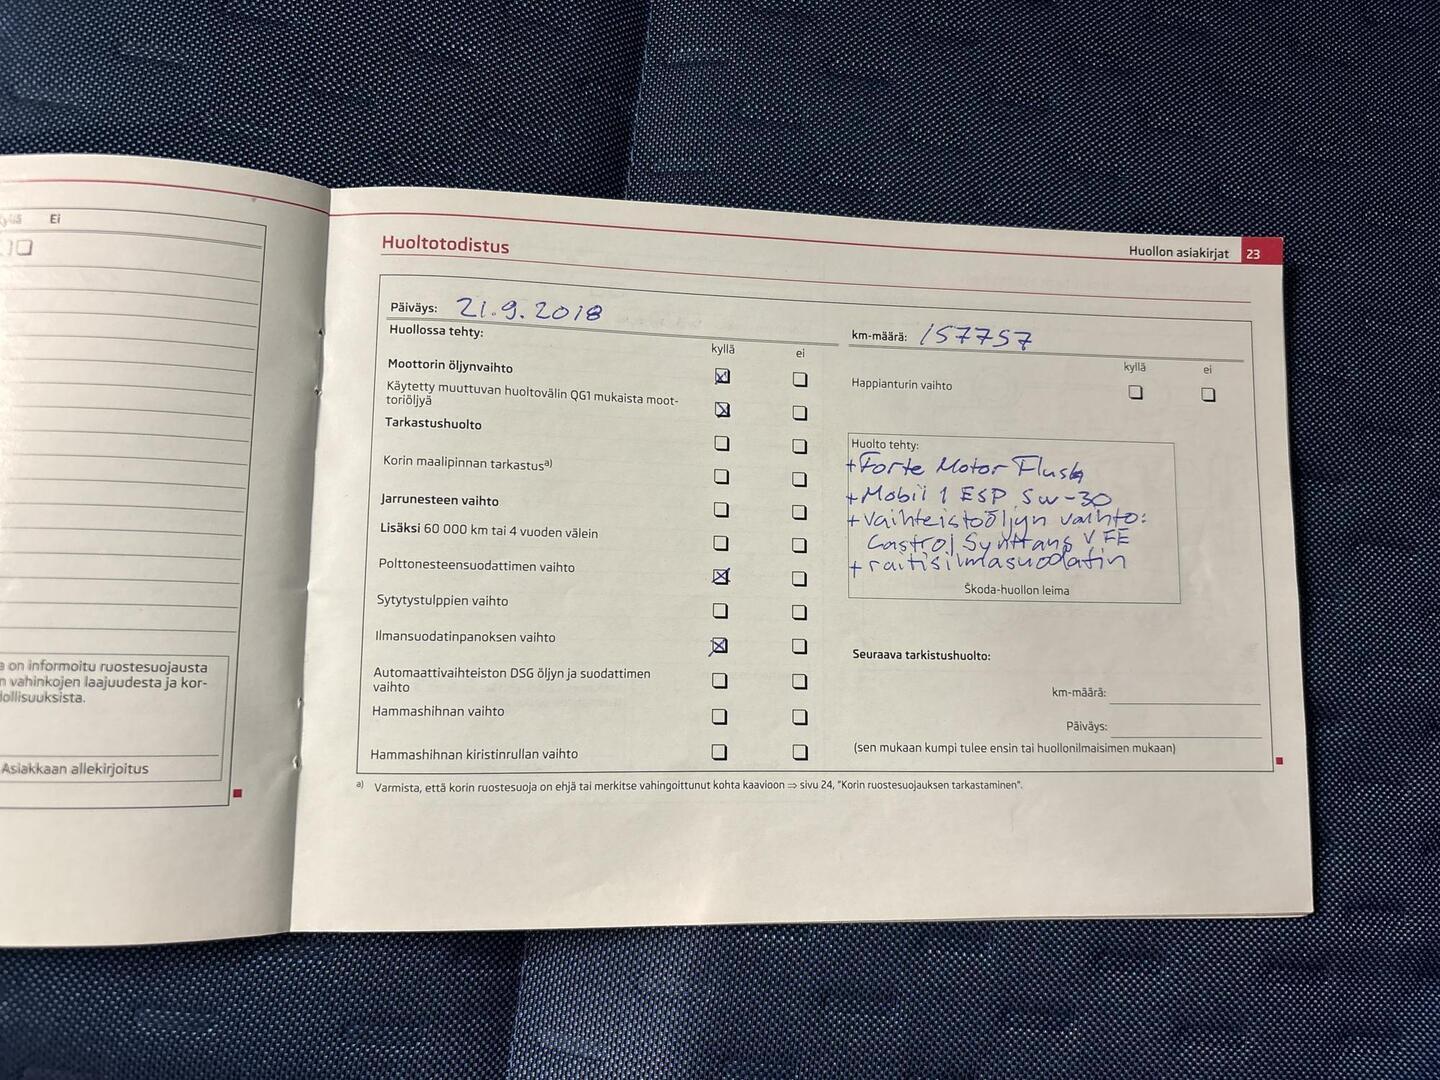 kyllä Ei
a on informoitu ruostesuojausta
n vahinkojen laajuudesta ja kor-
dollisuuksista.
Asiakkaan allekirjoitus
Huoltotodistus
Huollon asiakirjat 23
Päiväys: 21.9.2018
km-määrä: 157757
Huollossa tehty:
kyllä ei
Moottorin öljynvaihto
Käytetty muuttuvan huoltovälin QG1 mukaista moot-
toriöljyä
Tarkastushuolto
Korin maalipinnan tarkastus a)
Jarrunesteen vaihto
Lisäksi 60 000 km tai 4 vuoden välein
Polttonesteensuodattimen vaihto
Sytytystulppien vaihto
Ilmansuodatinpanoksen vaihto
Automaattivaihteiston DSG öljyn ja suodattimen
vaihto
Hammashihnan vaihto
Hammashihnan kiristinrullan vaihto
kyllä ei
Happianturin vaihto
Huolto tehty:
+Forte Motor Flush
+Mobil 1 ESP 5w-30
+Vaihteistoöljyn vaihto:
Castrol Syntrans VFE
+raitisilmasuodatin
Škoda-huollon leima
Seuraava tarkistushuolto:
km-määrä:
Päiväys:
(sen mukaan kumpi tulee ensin tai huollonilmaisimen mukaan)
a) Varmista, että korin ruostesuoja on ehjä tai merkitse vahingoittunut kohta kaavioon ⇒ sivu 24, "Korin ruostesuojauksen tarkastaminen".